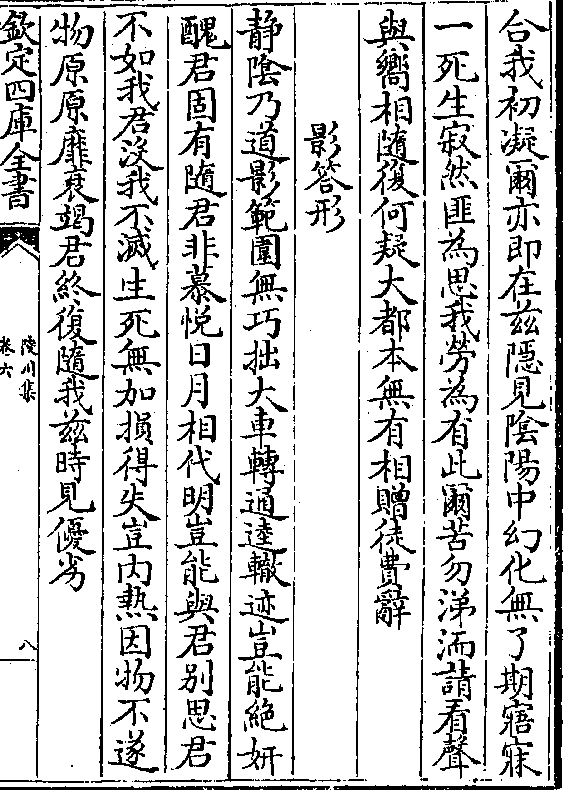 合我初凝爾亦即在兹隱見陰陽中幻化無了期寤寐
一死生寂然匪為思我勞為有此爾苦勿涕洏請看聲
與嚮相隨復何疑大都本無有相贈徒費辭
影答形
静陰乃道影範圍無巧拙大車轉通逵轍迹豈能絶妍
醜君固有隨君非慕悦日月相代明豈能與君别思君
不如我君沒我不滅生死無加損得失豈内熱因物不遂
物原原靡衰竭君終復隨我兹時見優劣
欽定四庫全書
陵川集
卷六
八